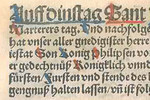 Auff dinstag Sant
Marterers tag. Und nachfolge
hat unser aller gnedigister herr
iestat Son König Philipsen vo
er gedechtnüß Königklich unnd
fürsten Fursten und stende des
gengnuß halten lassen/ vñ ist folg